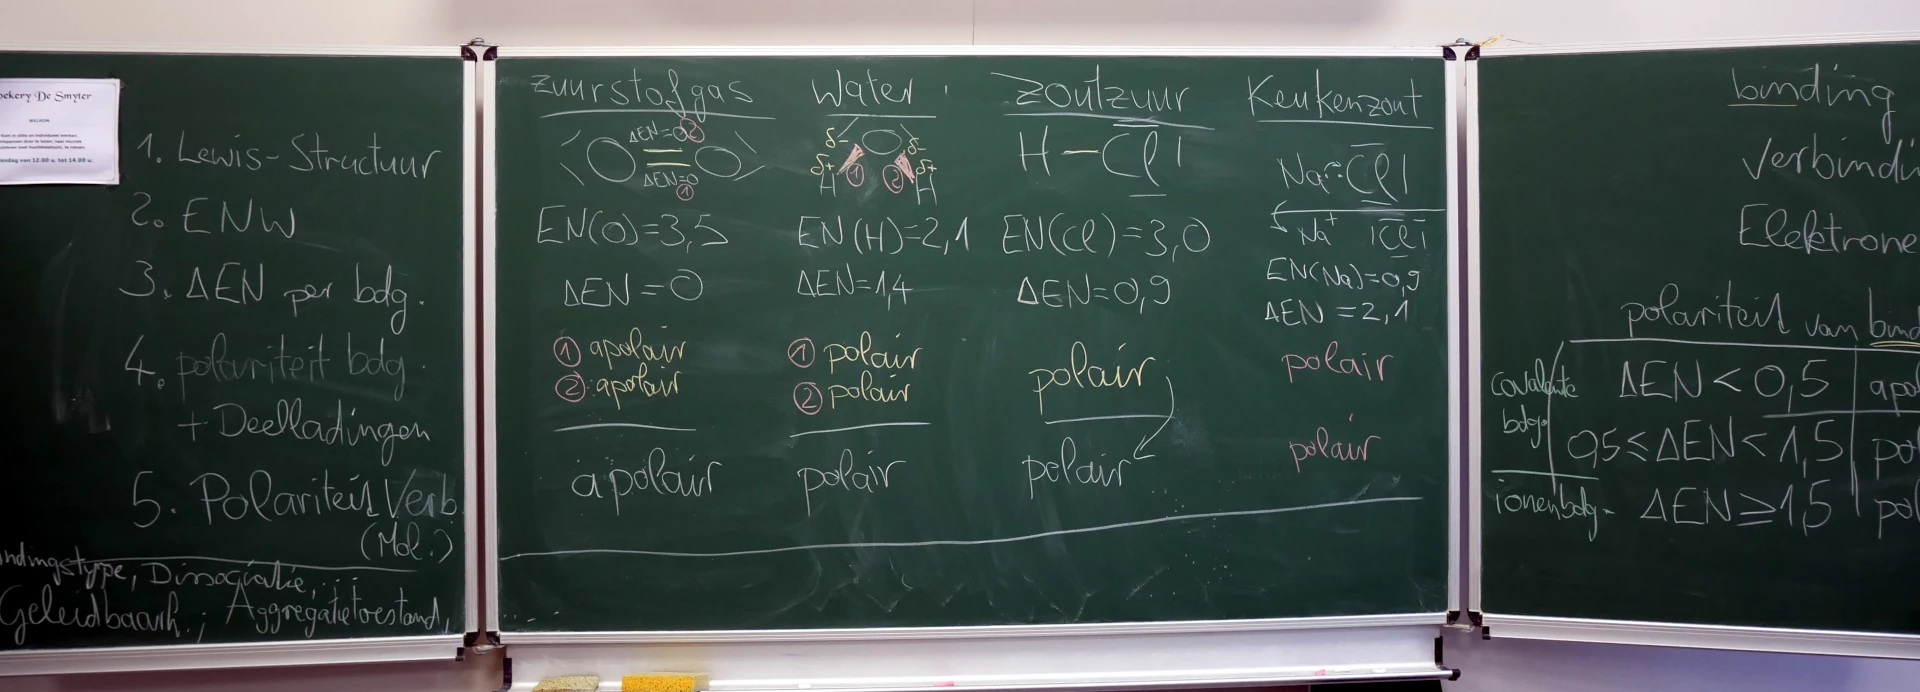 De Smyter
WELKOM
van 12.00 u. tot 14.00 u.
1. Lewis-Structuur
2. ENW
3. ΔEN per bdg.
4. polariteit bdg.
+ Deelladingen
5. Polariteit Verb.
(Mol.)
ndingstype, Dissociatie,
Geleidbaarh.; Aggregatietoestand,
zuurstofgas
ΔEN=0 2
O O
ΔEN=0
1
EN(O)=3,5
ΔEN=0
1 apolair
2 apolair
apolair
Water
δ- O δ-
δ+ δ+
H 1 2 H
EN(H)=2,1
ΔEN=1,4
1 polair
2 polair
polair
zoutzuur
H-Cl
EN(Cl)=3,0
ΔEN=0,9
polair
polair
Keukenzout
Na Cl
Na+ Cl
EN(Na)=0,9
ΔEN=2,1
polair
polair
binding
Verbindi
Elektrone
polariteit van bind
covalente
bdg.
ΔEN < 0,5 apol
0,5 ≤ ΔEN < 1,5 pol
ionenbdg. ΔEN ≥ 1,5 pol